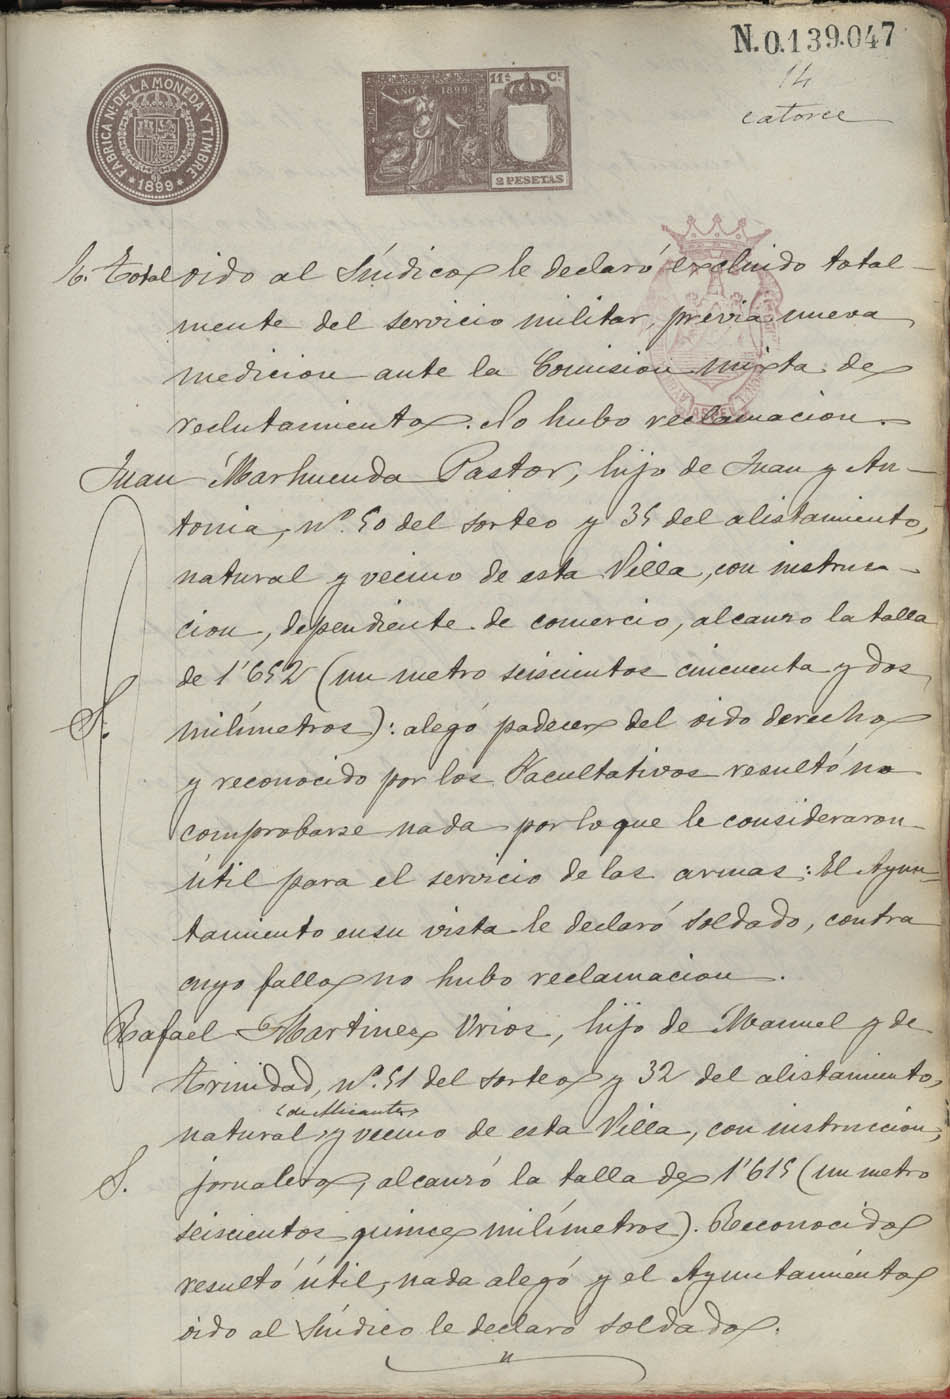 N.0.139.047
14
catorce
FÁBRICA Nal. DE LA MONEDA Y TIMBRE
* 1899 *
AÑO 1899
11ª Cl.
2 PESETAS
Total oido al Síndico le declaró excluido total-
mente del servicio militar, prévia nueva
medicion ante la Comision mixta de
reclutamiento. No hubo reclamacion.
Juan Marhuenda Pastor, hijo de Juan y An-
tonia, nº. 50 del sorteo y 35 del alistamiento,
natural y vecino de esta Villa, con instruc-
cion, dependiente de comercio, alcanzo la talla
de 1'652 (un metro seiscientos cincuenta y dos
S. milímetros): alegó padecer del oido derecho
y reconocido por los Facultativos resultó no
comprobarse nada por lo que le consideraron
útil para el servicio de las armas: El Ayun-
tamiento en su vista le declaró soldado, contra
cuyo fallo no hubo reclamacion.
Rafael Martinez Urios, hijo de Manuel y de
Trinidad, nº. 51 del sorteo y 32 del alistamiento,
(de Alicante)
natural y vecino de esta Villa, con instruccion,
S. jornalero, alcanzó la talla de 1'615 (un metro
seiscientos quince milímetros). Reconocido
resultó útil, nada alegó y el Ayuntamiento
oido al Síndico le declaró soldado.